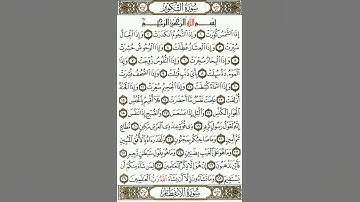 سُورَةُ التَّكْوِيرِ
بِسْمِ اللَّهِ الرَّحْمَٰنِ الرَّحِيمِ
إِذَا الشَّمْسُ كُوِّرَتْ وَإِذَا النُّجُومُ انكَدَرَتْ وَإِذَا الْجِبَالُ
سُيِّرَتْ وَإِذَا الْعِشَارُ عُطِّلَتْ وَإِذَا الْوُحُوشُ حُشِرَتْ
وَإِذَا الْبِحَارُ سُجِّرَتْ وَإِذَا النُّفُوسُ زُوِّجَتْ وَإِذَا
الْمَوْءُدَةُ سُئِلَتْ بِأَيِّ ذَنبٍ قُتِلَتْ وَإِذَا الصُّحُفُ نُشِرَتْ
وَإِذَا السَّمَاءُ كُشِطَتْ وَإِذَا الْجَحِيمُ سُعِّرَتْ وَإِذَا
الْجَنَّةُ أُزْلِفَتْ عَلِمَتْ نَفْسٌ مَّا أَحْضَرَتْ فَلَا أُقْسِمُ بِالْخُنَّسِ
الْجَوَارِ الْكُنَّسِ وَاللَّيْلِ إِذَا عَسْعَسَ وَالصُّبْحِ إِذَا تَنَفَّسَ
إِنَّهُ لَقَوْلُ رَسُولٍ كَرِيمٍ ذِي قُوَّةٍ عِندَ ذِي الْعَرْشِ مَكِينٍ مُّطَاعٍ
ثَمَّ أَمِينٍ وَمَا صَاحِبُكُم بِمَجْنُونٍ وَلَقَدْ رَءَاهُ بِالْأُفُقِ الْمُبِينِ
وَمَا هُوَ عَلَى الْغَيْبِ بِضَنِينٍ وَمَا هُوَ بِقَوْلِ شَيْطَٰنٍ رَّجِيمٍ
فَأَيْنَ تَذْهَبُونَ إِنْ هُوَ إِلَّا ذِكْرٌ لِّلْعَٰلَمِينَ لِمَن شَاءَ مِنكُمْ أَن
يَسْتَقِيمَ وَمَا تَشَاءُونَ إِلَّا أَن يَشَاءَ اللَّهُ رَبُّ الْعَٰلَمِينَ
سُورَةُ الِانفِطَارِ